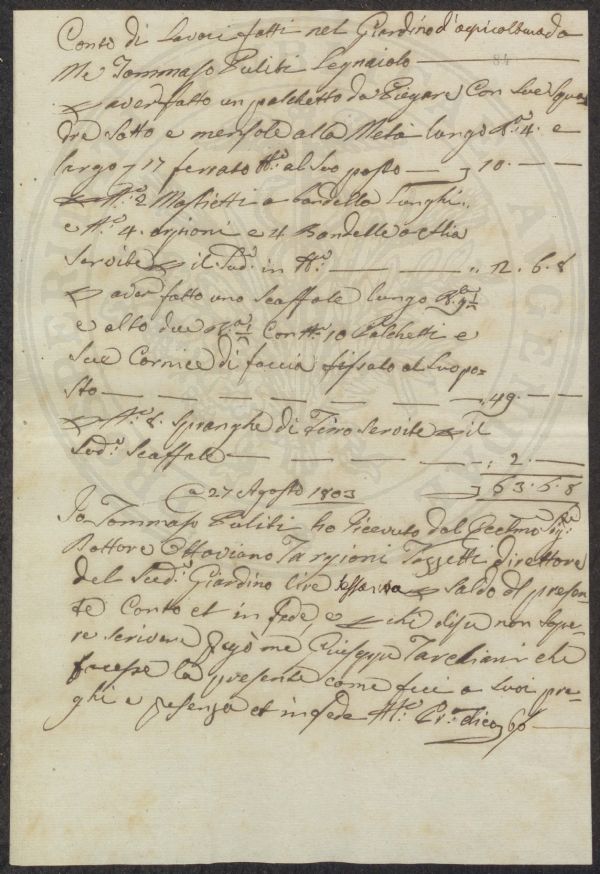 Conto di Lavori fatti nel Giardino d'agricoltura da
Me Tommaso Puliti Legnaiolo
84
aver fatto un palchetto da Piegare Con sue squa=
dre sotto e mensole alla Metà lungo Ba 4. e
largo 17 ferrato al suo posto — 10. —
No 2 Mastietti a bandella lunghi
e No 4. arpioni e 4 Bandelle
Servite il Sudo in — 12. 6. 8
aver fatto uno Scaffale lungo
e alto due Con No 10 Palchetti e
Sue Cornice di faccia fissato al suo po=
sto — 49. —
No 8. Spranghe di Ferro Servite il
Sudo Scaffale — 2. —
63. 6. 8
a 27 Agosto 1803
Io Tommaso Puliti ho ricevuto dal Sig:re
Dottore Ottaviano Targioni Tozzetti direttore
del Sudo Giardino lire sessanta Saldo del presen=
te Conto et in fede, e che disse non Sape=
re scrivere pregò me Giuseppe che
facesse la presente come feci a Suoi pre=
ghi e presenza et in fede dico 60 —